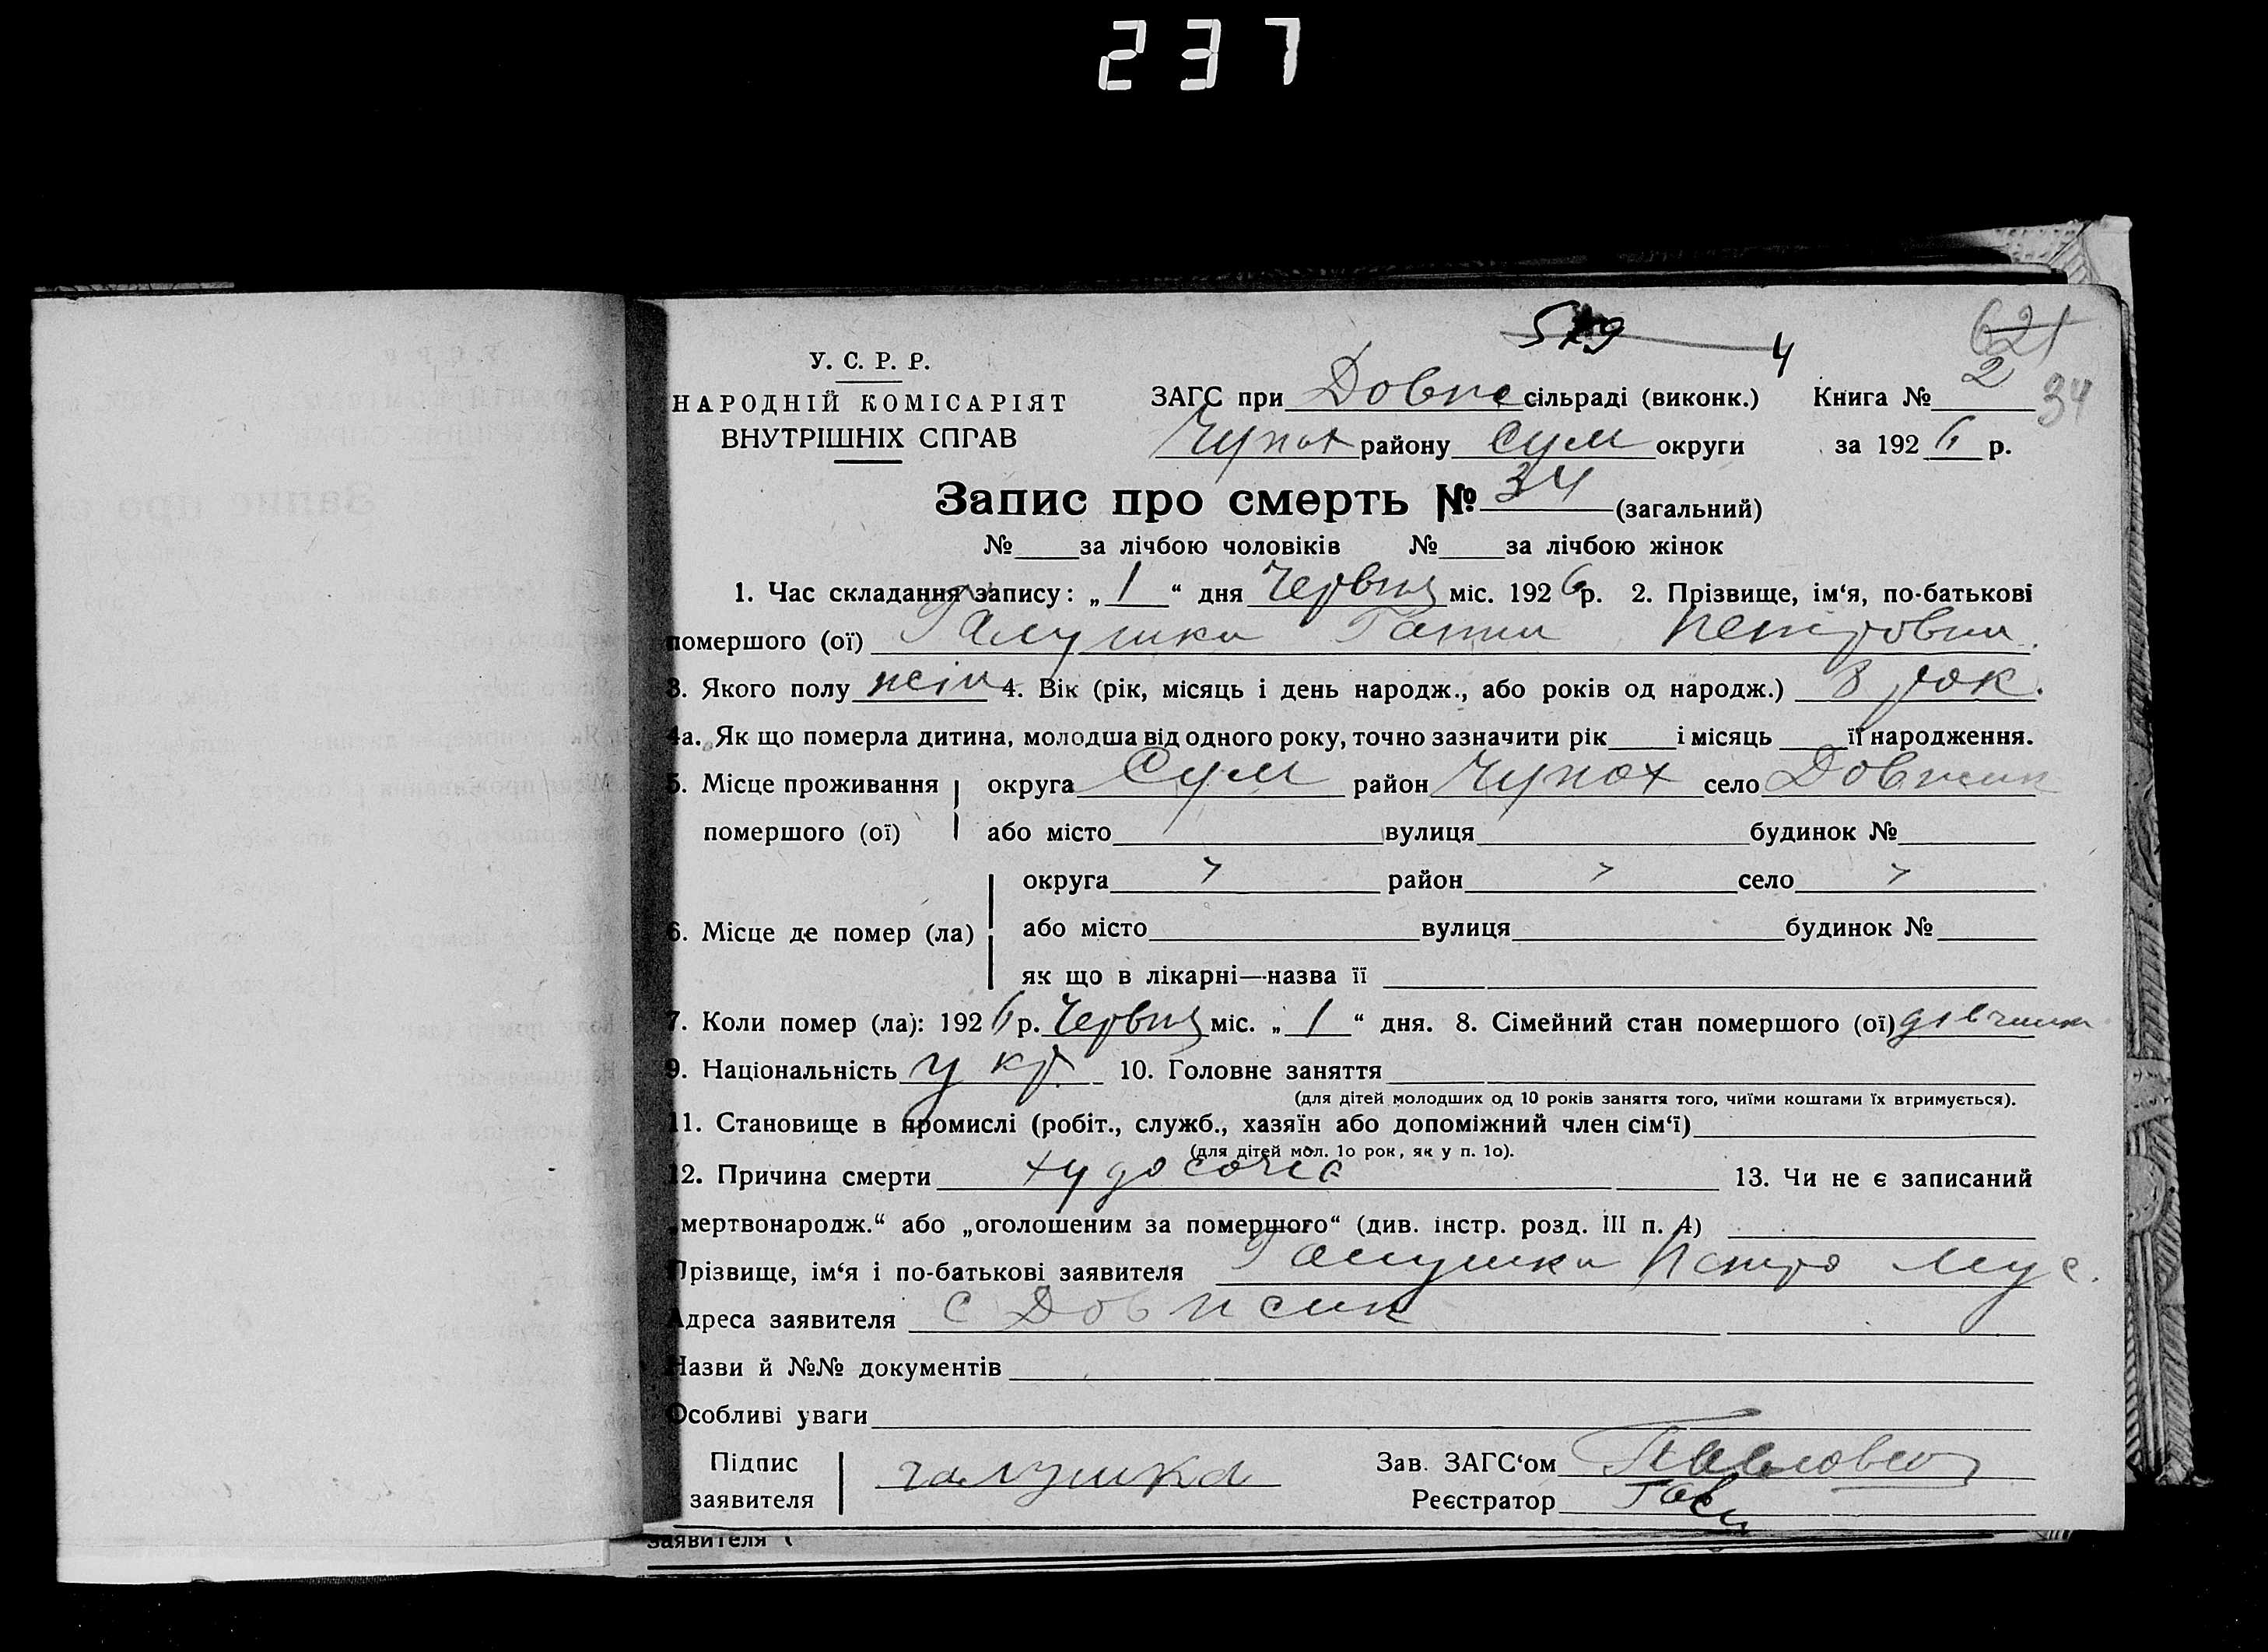 237
579 4 621
У. С. Р. Р.
НАРОДНІЙ КОМІСАРІЯТ
ВНУТРІШНІХ СПРАВ
ЗАГС при Довж сільраді (виконк.) Книга № 2 34
Чупах району Сум округи за 1926 р.
Запис про смерть № 34 (загальний)
№ за лічбою чоловіків № за лічбою жінок
1. Час складання запису: „ 1 “ дня Червня міс. 1926 р. 2. Прізвище, ім‘я, по-батькові
помершого (ої) Галушка Ганна Петровна
3. Якого полу жін 4. Вік (рік, місяць і день народж., або років од народж.) 8 рок.
4а. Як що померла дитина, молодша від одного року, точно зазначити рік і місяць її народження.
5. Місце проживання округа Сум район Чупах село Довжик
помершого (ої) або місто вулиця будинок №
округа район село
6. Місце де помер (ла) або місто вулиця будинок №
як що в лікарні—назва її
7. Коли помер (ла): 1926 р. Червня міс. „ 1 “ дня. 8. Сімейний стан помершого (ої) дівчина
9. Національність укр. 10. Головне заняття
(для дітей молодших од 10 років заняття того, чиїми коштами їх втримується).
11. Становище в промислі (робіт., служб., хазяїн або допоміжний член сім‘ї)
(для дітей мол. 1о рок, як у п. 1о).
12. Причина смерти худосочіє 13. Чи не є записаний
„мертвонародж.“ або „оголошеним за помершого“ (див. інстр. розд. III п. 4)
Прізвище, ім‘я і по-батькові заявителя Галушка Петро Мус.
Адреса заявителя с Довжик
Назви й №№ документів
Особливі уваги
Підпис
заявителя галушка
Зав. ЗАГС‘ом
Реєстратор
заявителя